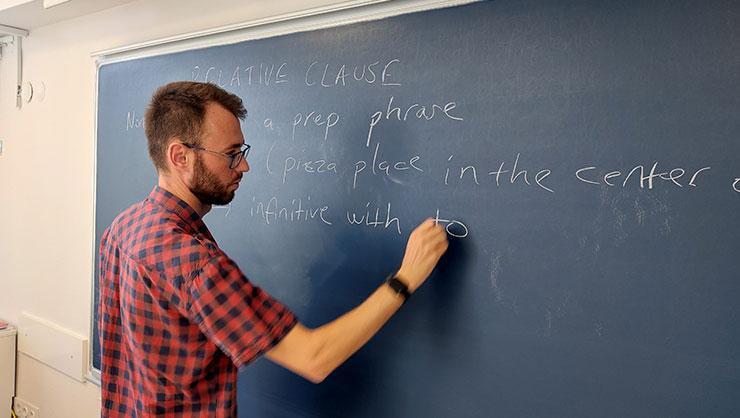 RELATIVE CLAUSE
a prep phrase
(pizza place in the center
→ infinitive with to